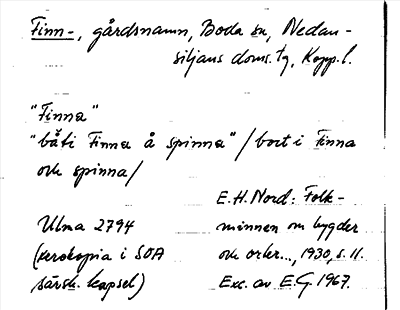 Finn-, gårdsnamn, Boda sn, Nedan-
siljans doms. tg, Kopp. l.
"Finna"
"båti Finna å spinna" / bort i Finna
och spinna /
Ulma 2794
(xerokopia i SOA
särsk. kapsel)
E.H. Nord: Folk-
minnen om bygder
och orter..., 1930, s. 11.
Exc. av E.G. 1967.